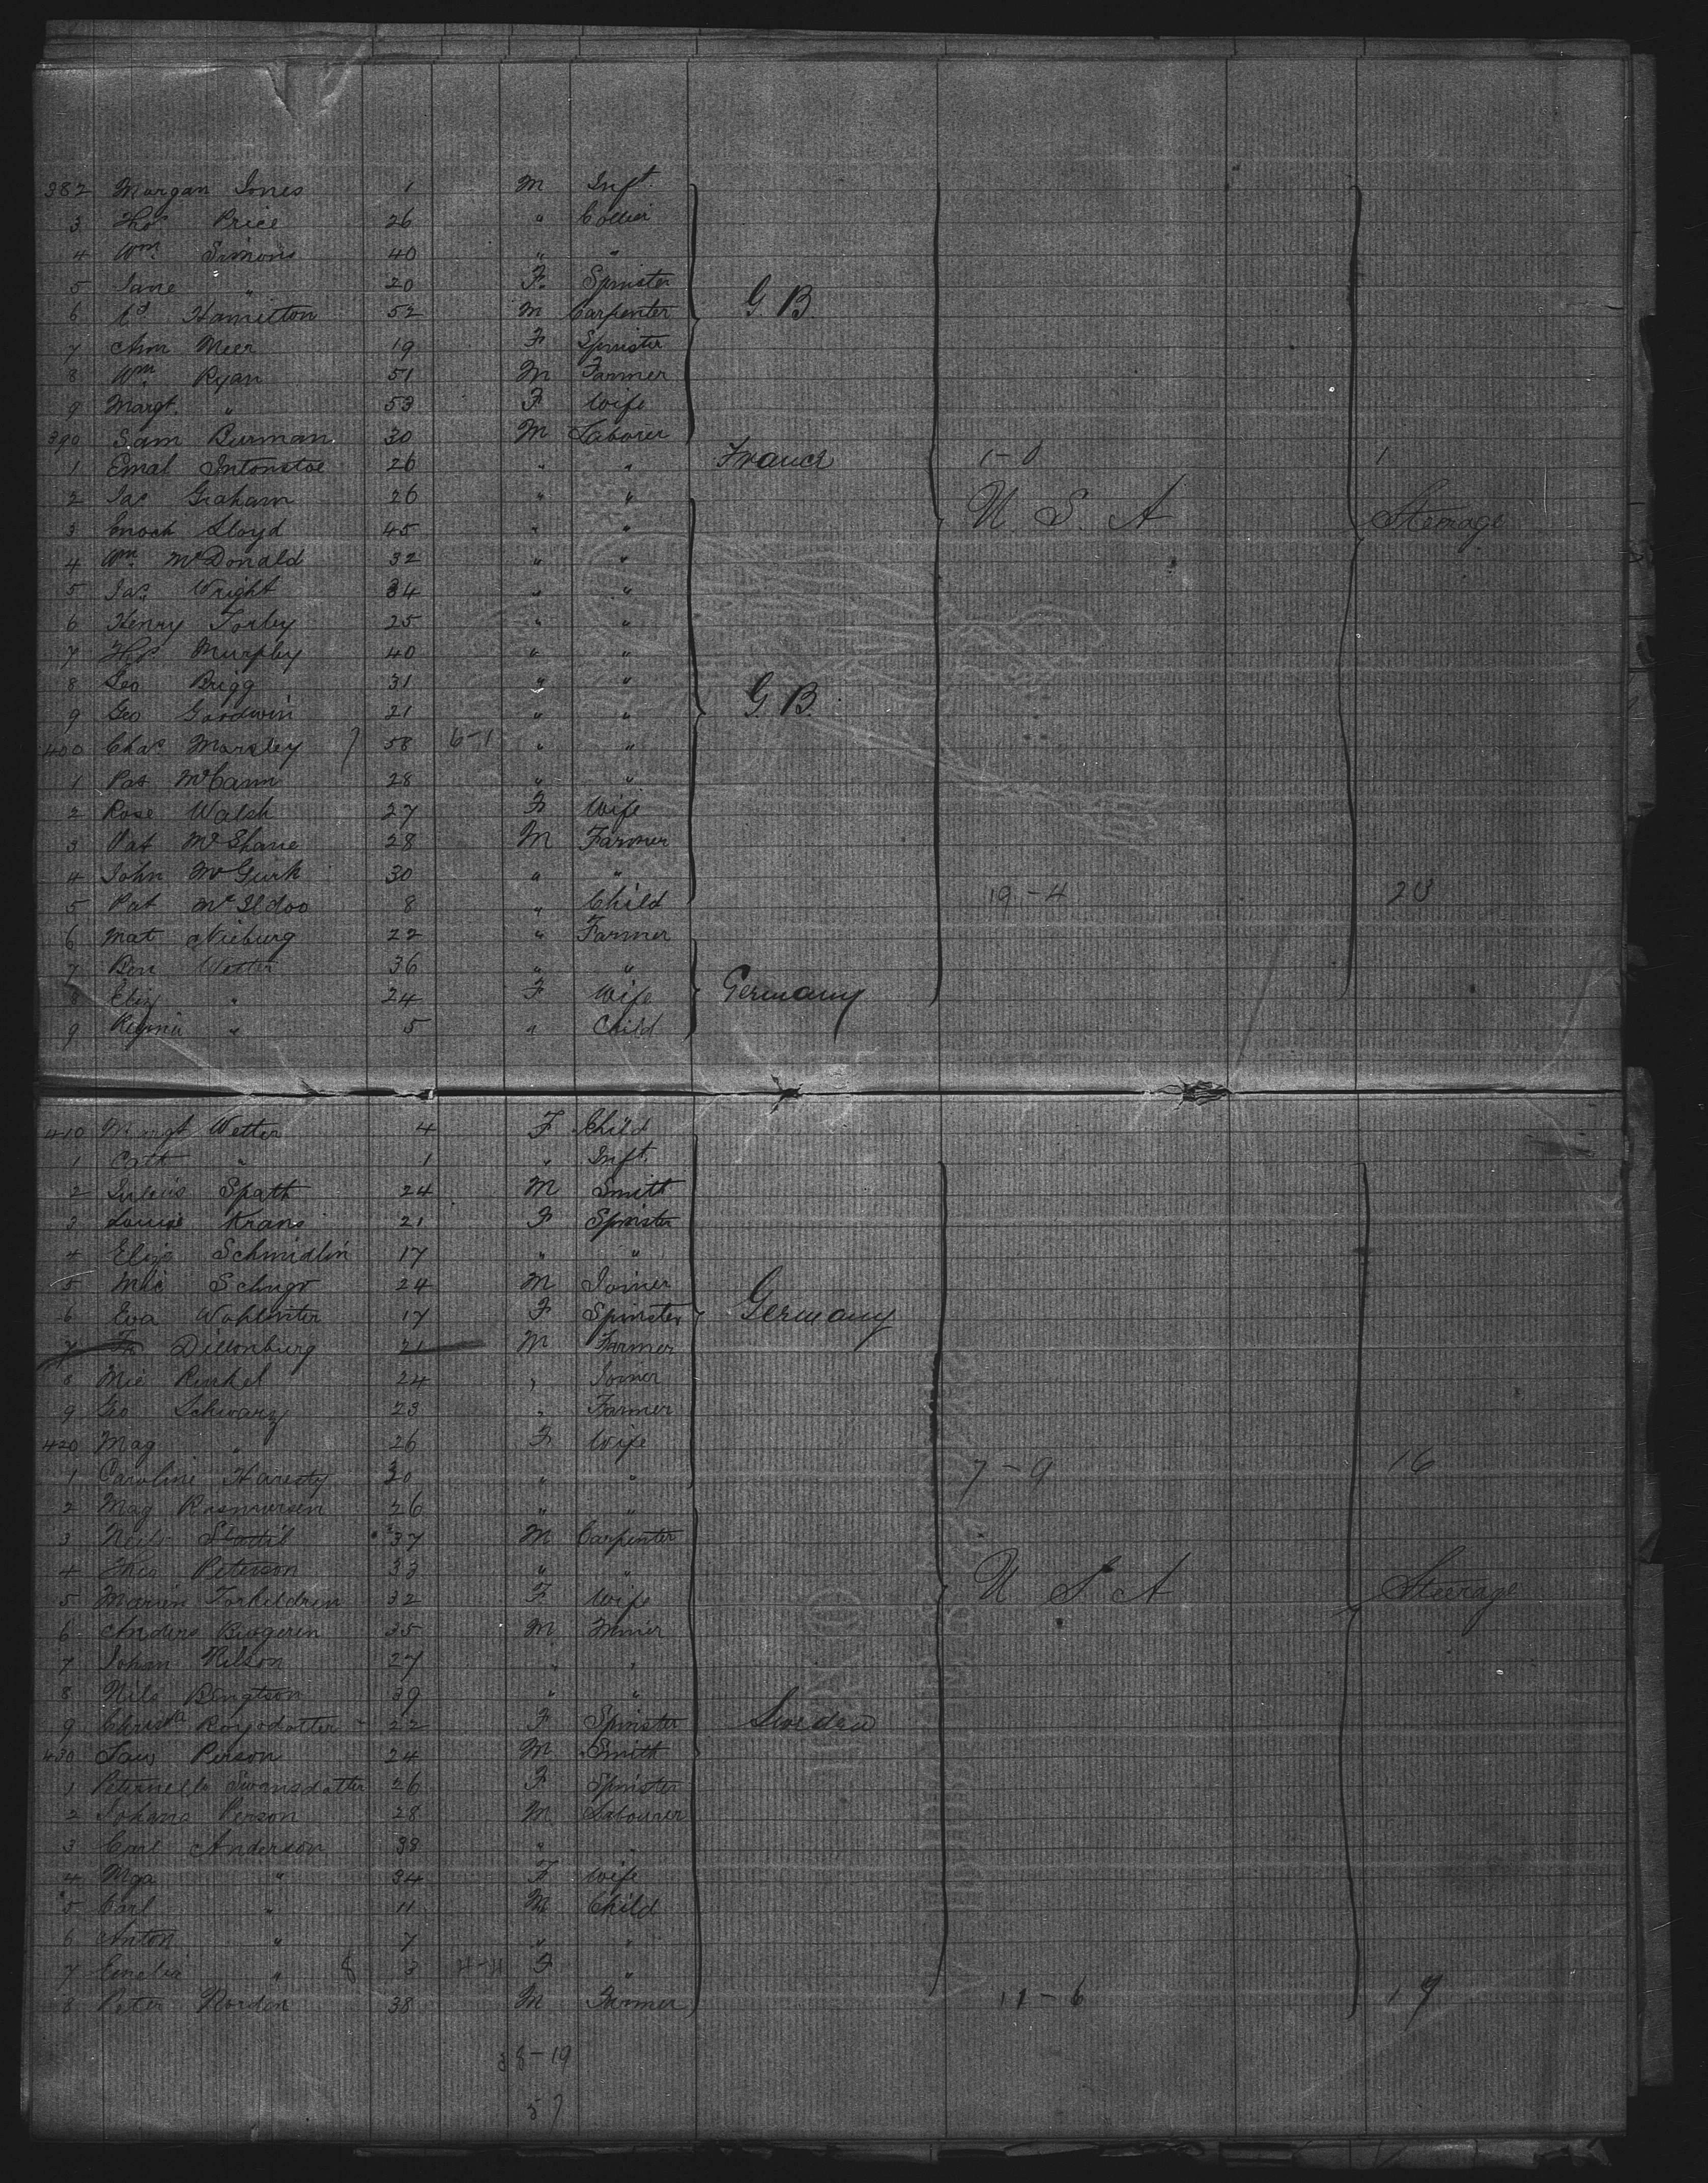 382 Morgan Jones 1 M Inft.
3 Thos Price 26 " Collier
4 Wm. Simons 40 " "
5 Jane " 20 F. Spinster G. B.
6 Hamilton 52 M Carpenter
7 Ann Meer 19 F Spinster
8 Wm. Ryan 51 M Farmer
9 Margt. " 53 F Wife
390 Sam Burman 30 M Laborer
1 Emal Intonstoe 26 " " France 1-0 1
2 Jas Graham 26 " " U. S. A Steerage
3 Enoch Lloyd 45 " "
4 Wm. McDonald 32 " "
5 Jas. Wright 34 " "
6 Henry Torley 25 " "
7 Thos Murphy 40 " "
8 Geo Brigg 31 " "
9 Geo Goodwin 21 " " G. B.
400 Chas Morsley 58 6-1 " "
1 Pat McCann 28 " "
2 Rose Walsh 27 F Wife
3 Pat McShane 28 M Farmer
4 John McGurk 30 " "
5 Pat McIldoo 8 " Child 19-4 23
6 Mat Nieburg 22 " Farmer
7 Ben Wetter 36 " "
8 Eliz " 24 F Wife Germany
9 Regina " 5 " Child
410 Margt Wetter 4 F Child
1 Cath " 1 " Inft.
2 Julius Spath 24 M Smith
3 Louise Krans 21 F Spinster
4 Eliza Schmidlin 17 " "
5 Mic 24 M Joiner
6 Eva Wohlenter 17 F Spinster Germany
7 Dillonburg 21 M Farmer
8 Mic Runkel 24 " Joiner
9 Geo Schwarz 23 " Farmer
420 Mag " 26 F Wife
1 Caroline Haresty 30 " " 7-9 16
2 Mag Rasmursen 26 " "
3 Neils Stadil 37 M Carpenter
4 Theo Peterson 33 " "
5 Marien Torkildren 32 F Wife U S A Steerage
6 Anders 35 M
7 Johan Nilson 27 " "
8 Nils Bengtson 39 " "
9 Christa 22 F Spinster Sweden
430 Laws Person 24 M Smith
1 Peternella Swansdatter 26 F Spinster
2 Johans Person 28 M Labourer
3 Carl Anderson 38 " "
4 Mga " 34 F Wife
5 Carl " 11 M Child
6 Anton " 7 " "
7 Emelia " 8 3 4-4 F "
8 Peter Norden 38 M Farmer 11-6 17
38-19
57